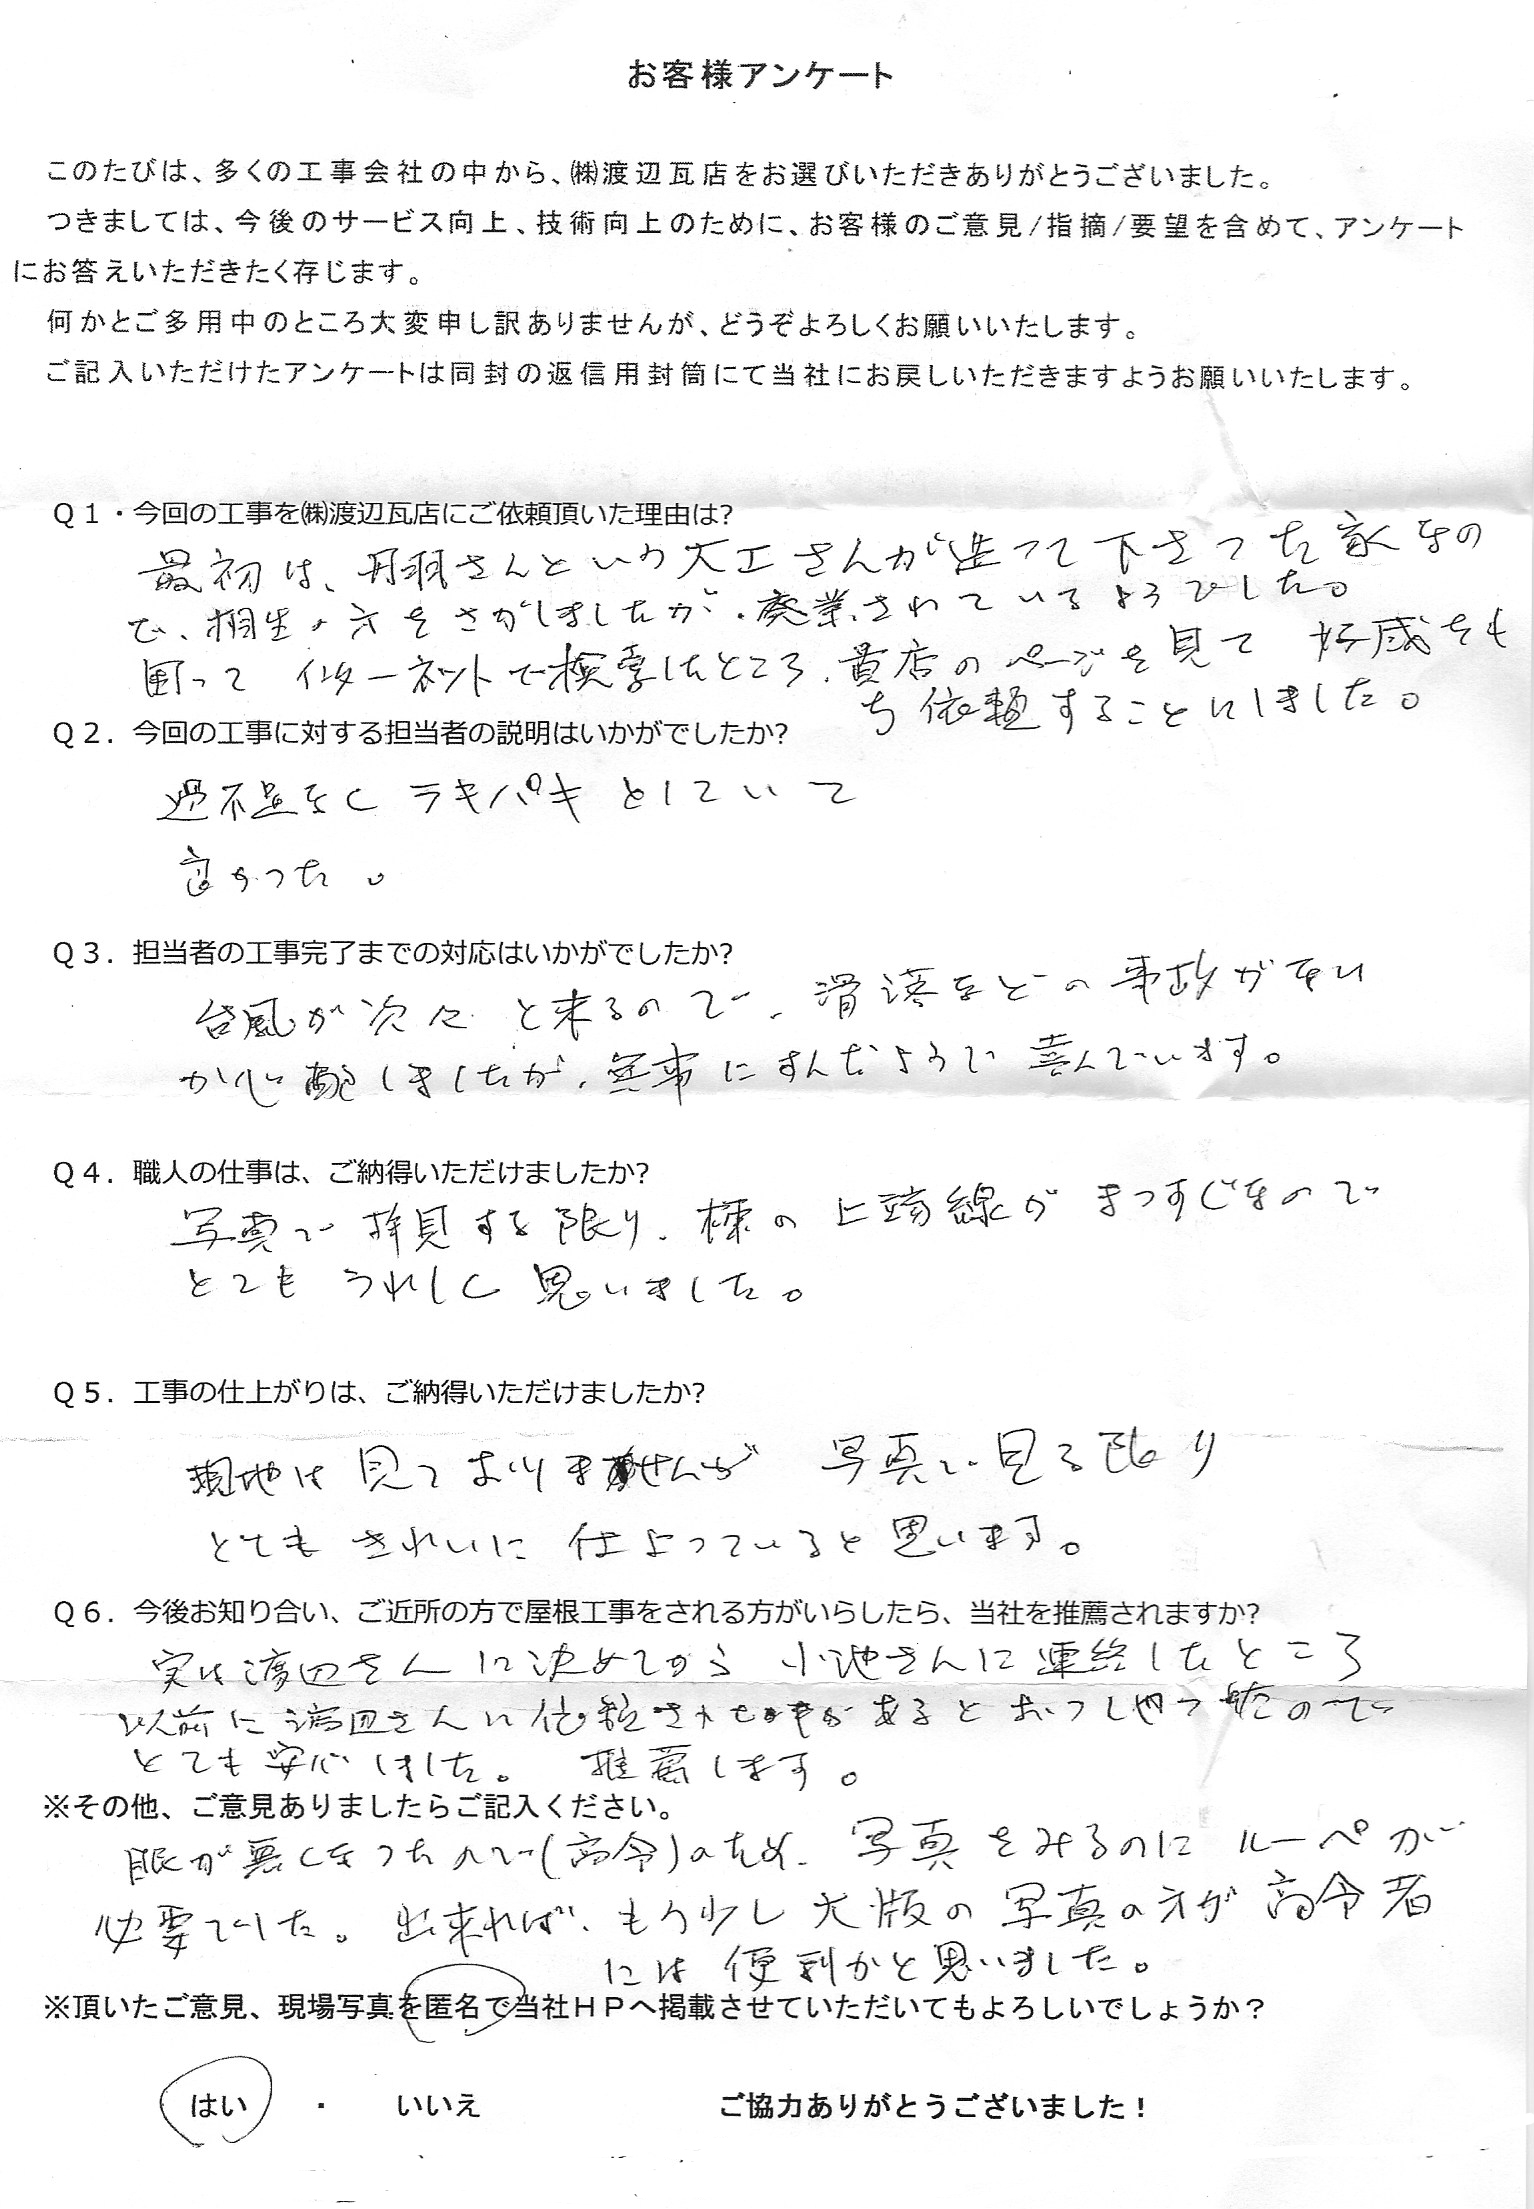 お客様アンケート
このたびは、多くの工事会社の中から、㈱渡辺瓦店をお選びいただきありがとうございました。
つきましては、今後のサービス向上、技術向上のために、お客様のご意見/指摘/要望を含めて、アンケート
にお答えいただきたく存じます。
何かとご多用中のところ大変申し訳ありませんが、どうぞよろしくお願いいたします。
ご記入いただけたアンケートは同封の返信用封筒にて当社にお戻しいただきますようお願いいたします。
Q1・今回の工事を㈱渡辺瓦店にご依頼頂いた理由は?
最初は、丹羽さんという大工さんが造って下さった家なの
で、桐生の方をさがしましたが、廃業されているようでした。
困って インターネットで検索したところ、貴店のページを見て 好感をも
ち依頼することにしました。
Q2. 今回の工事に対する担当者の説明はいかがでしたか?
過不足なく ラキパキ としていて
良かった。
Q3. 担当者の工事完了までの対応はいかがでしたか?
台風が次々と来るので、滑落などの事故がない
か心配しましたが、無事にすんだようで喜んでいます。
Q4. 職人の仕事は、ご納得いただけましたか?
写真で拝見する限り、棟の上端線がまっすぐなので
とてもうれしく思いました。
Q5. 工事の仕上がりは、ご納得いただけましたか?
現地は見ておりませんが 写真で見る限り
とてもきれいに仕上っていると思います。
Q6. 今後お知り合い、ご近所の方で屋根工事をされる方がいらしたら、当社を推薦されますか?
実は渡辺さんに決めてから 小池さんに連絡したところ
以前に渡辺さんに依頼された事があるとおっしゃったので
とても安心しました。 推薦します。
※その他、ご意見ありましたらご記入ください。
眼が悪くなったので(高令)のため、写真をみるのにルーペが
必要でした。出来れば、もう少し大版の写真の方が高令者
には便利かと思いました。
※頂いたご意見、現場写真を匿名で当社HPへ掲載させていただいてもよろしいでしょうか?
はい ・ いいえ ご協力ありがとうございました!